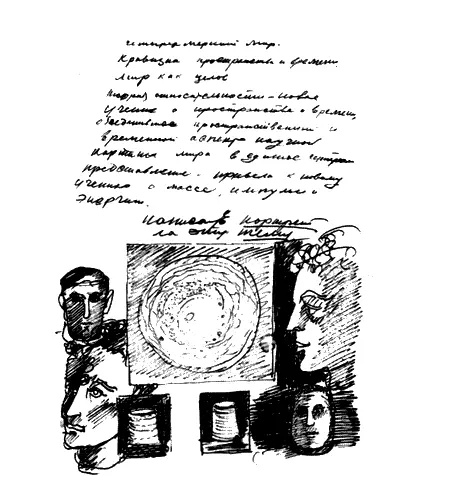 четырехмерный мир.
Кривизна пространства и времени.
Мир как целое
Теория относительности – новое
учение о пространстве и времени,
объединившее пространственный и
временной аспекты научной
картины мира в единое
представление – привела к новому
учению о массе, импульсе и
энергии.
Написать портрет
на эту тему